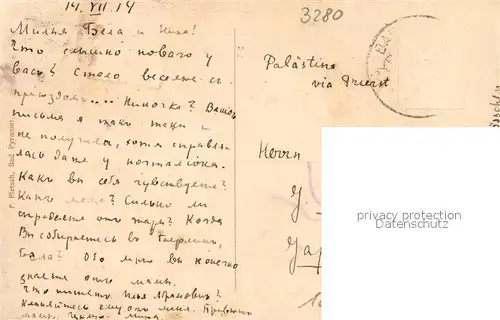 14. VII. 14
3280
Милыя Бела и
Что слышно новаго у
васъ? Стало веселее съ
приездомъ.... Ниночка? Вашего
письма я такъ таки и
не получила, хотя справля
лась даже у почтальона.
Какъ вы себя чувствуете?
Какъ мама? Сильно ли
страдаете отъ жары? Когда
Вы собираетесь въ Берлинъ,
Бела? Обо мне вы конечно
знаете отъ мамы.
Что пишетъ Илья Абрамовичъ?
Кланяйтесь ему отъ меня.
Palästina
via Triest
Herrn
F. Pietsch, Bad Pyrmont
privacy protection
Datenschutz